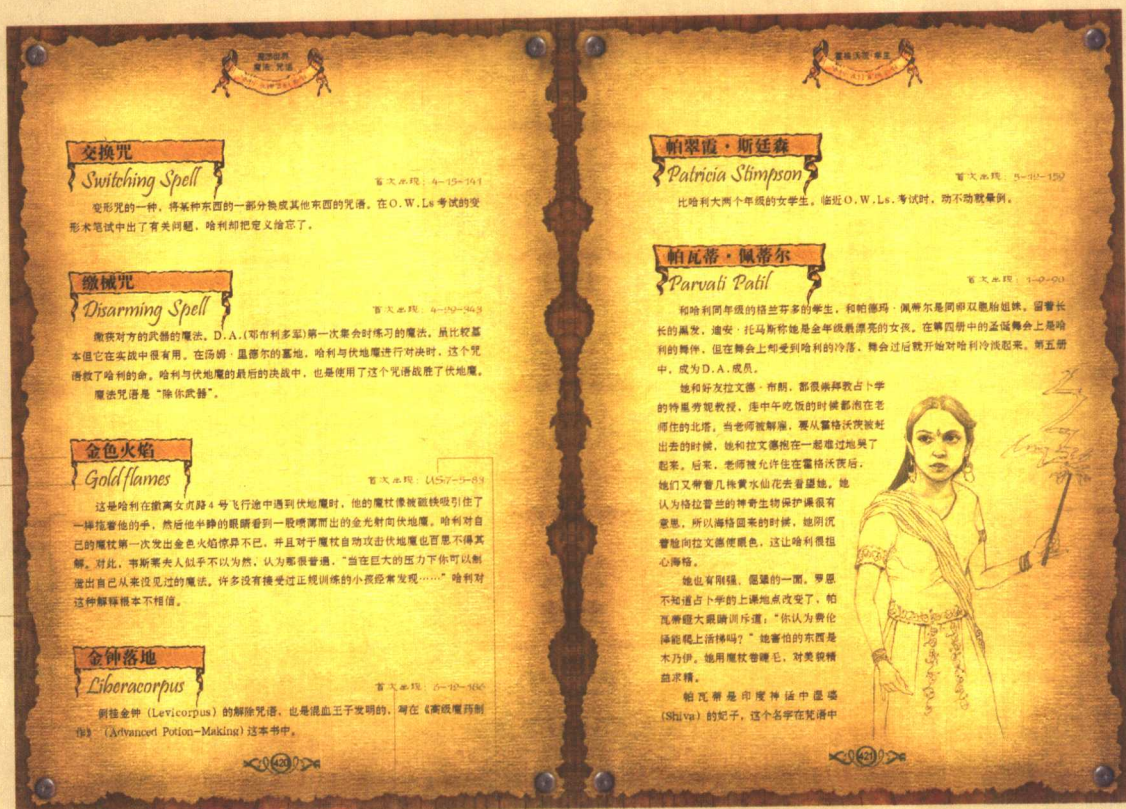 魔法·咒语
交换咒
Switching Spell
首次出现：4-15-141
变形咒的一种，将某种东西的一部分换成其他东西的咒语。在O.W.Ls考试的变
形术笔试中出了有关问题，哈利却把定义给忘了。
缴械咒
Disarming Spell
首次出现：
缴获对方的武器的魔法。D.A.(邓布利多军)第一次集会时练习的魔法。虽比较基
本但它在实战中很有用。在汤姆·里德尔的墓地，哈利与伏地魔进行对决时，这个咒
语救了哈利的命。哈利与伏地魔的最后的决战中，也是使用了这个咒语战胜了伏地魔。
魔法咒语是“除你武器”。
金色火焰
Gold flames
首次出现：US-7-5-83
这是哈利在撤离女贞路4号飞行途中遇到伏地魔时，他的魔杖像被磁铁吸引住了
一样拖着他的手，然后他半睁的眼睛看到一股喷薄而出的金光射向伏地魔。哈利对自
己的魔杖第一次发出金色火焰惊异不已，并且对于魔杖自动攻击伏地魔也百思不得其
解。对此，韦斯莱夫人似乎不以为然，认为那很普通，“当在巨大的压力下你可以制
造出自己从来没见过的魔法。许多没有接受过正规训练的小孩经常发现……”哈利对
这种解释根本不相信。
金钟落地
Liberacorpus
首次出现：
倒挂金钟（Levicorpus）的解除咒语，也是混血王子发明的，写在《高级魔药制
作》（Advanced Potion-Making）这本书中。
420
霍格沃茨·学生
帕翠霞·斯廷森
Patricia Stimpson
首次出现：
比哈利大两个年级的女学生。临近O.W.Ls.考试时，动不动就晕倒。
帕瓦蒂·佩蒂尔
Parvati Patil
首次出现：1-9-90
和哈利同年级的格兰芬多的学生，和帕德玛·佩蒂尔是同卵双胞胎姐妹。留着长
长的黑发，迪安·托马斯称她是全年级最漂亮的女孩。在第四册中的圣诞舞会上是哈
利的舞伴，但在舞会上却受到哈利的冷落，舞会过后就开始对哈利冷淡起来。第五册
中，成为D.A.成员。
她和好友拉文德·布朗，都很崇拜教占卜学
的特里劳妮教授，连中午吃饭的时候都泡在老
师住的北塔。当老师被解雇，要从霍格沃茨被赶
出去的时候，她和拉文德抱在一起难过地哭了
起来。后来，老师被允许住在霍格沃茨后，
她们又带着几株黄水仙花去看望她。她
认为格拉普兰的神奇生物保护课很有
意思，所以海格回来的时候，她阴沉
着脸向拉文德使眼色，这让哈利很担
心海格。
她也有刚强、倔犟的一面。罗恩
不知道占卜学的上课地点改变了，帕
瓦蒂瞪大眼睛训斥道：“你认为费伦
泽能爬上活梯吗？”她害怕的东西是
木乃伊。她用魔杖卷睫毛，对美貌精
益求精。
帕瓦蒂是印度神话中湿婆
（Shiva）的妃子，这个名字在咒语中
421